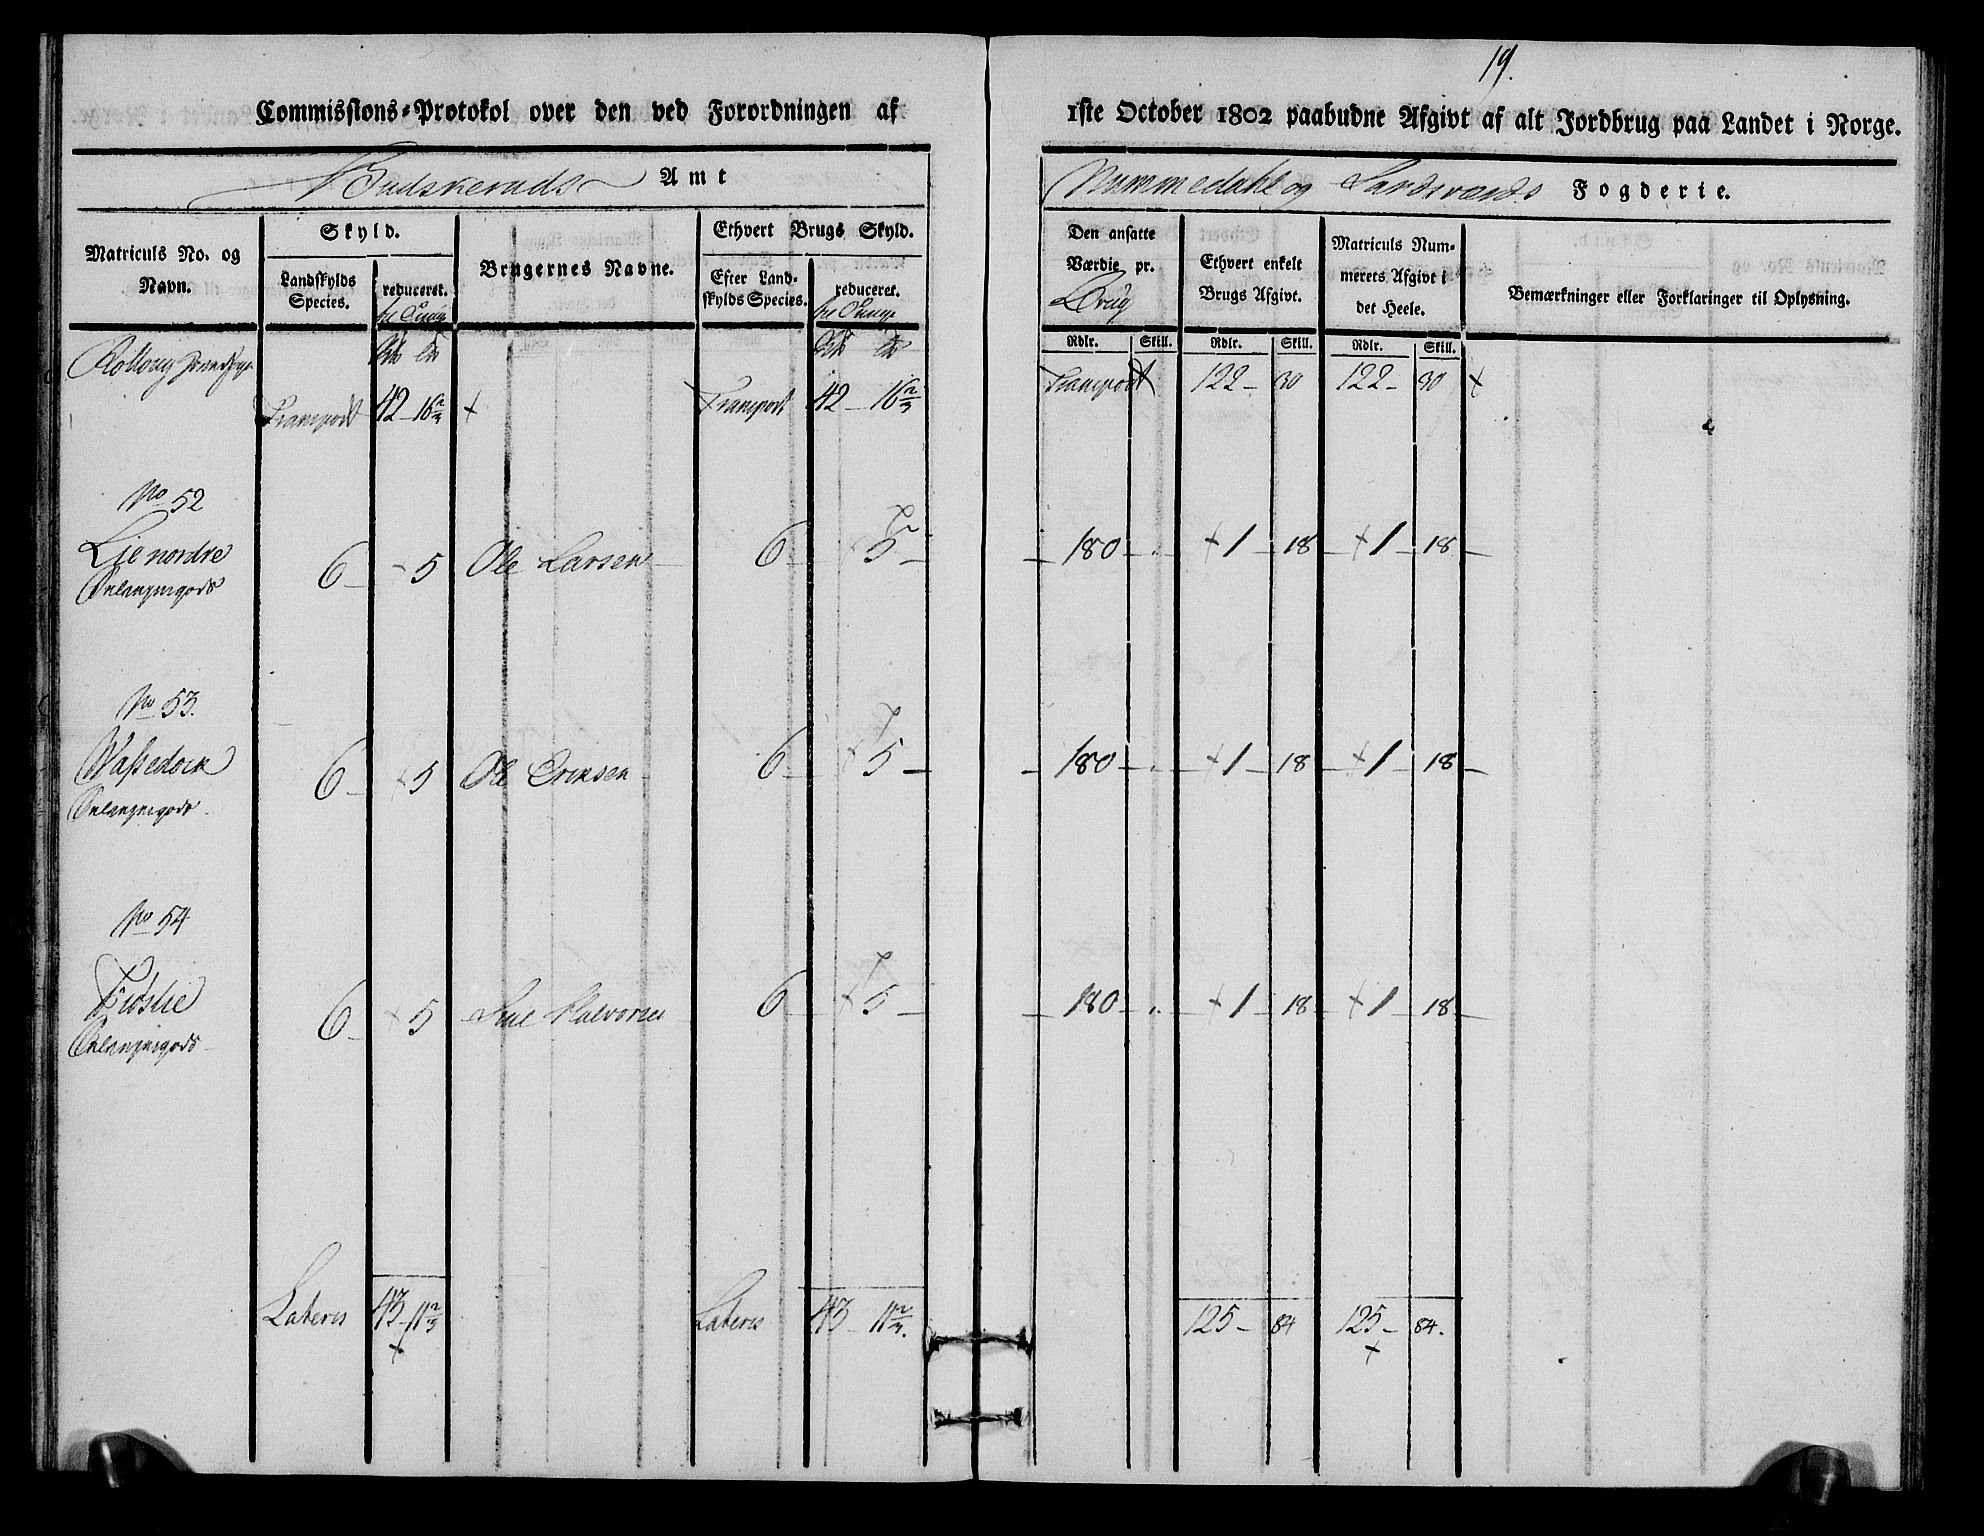 19.
Commissions-Protokol over den ved Forordningen af 1ste October 1802 paabudne Afgivt af alt Jordbrug paa Landet i Norge.
Budskeruds Amt
Nummedahl og Sandsværds Fogderie.
Matriculs No. og Navn.
Skyld.
Landskylds Species.
reduceret.
Brugernes Navne.
Ethvert Brugs Skyld.
Efter Landskylds Species.
reduceret.
Den ansatte Værdie pr. Brug
Ethvert enkelt Brugs Afgivt.
Matriculs Nummerets Afgivt i det Heele.
Bemærkninger eller Forklaringer til Oplysning.
Rdlr. Skill. Rdlr. Skill. Rdlr. Skill.
Rolloug
Transport 42 - 16 2/3 + Transport 42 - 16 2/3 Transport 122 - 30 122 - 30 +
No 52
Lie nordre 6 - + 5 Ole Larsen 6 - + 5 - 180 - " + 1 - 18 + 1 - 18
No 53.
6 - + 5 Ole Ericksen 6 - + 5 - 180 - " + 1 - 18 + 1 - 18
No 54
6 - + 5 Halvorsen 6 - + 5 - 180 - " + 1 - 18 + 1 - 18
Lateris 43 - 11 2/3 Lateris 43 - 11 2/3. 125 - 84 125 - 84.
+ +